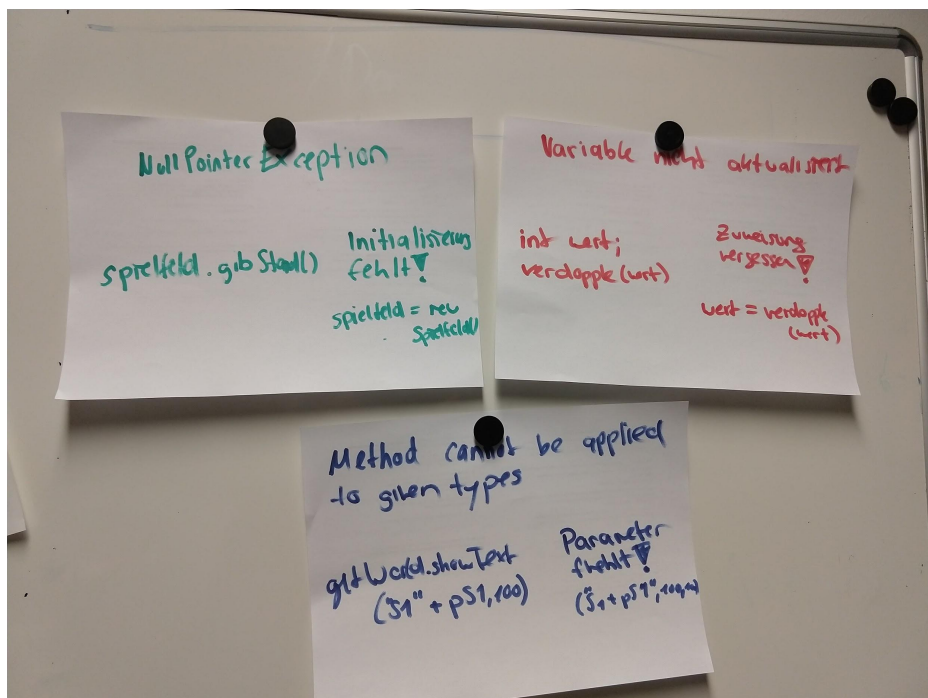 NullPointerException
spielfeld.gibStadt()
Initialisierung
fehlt!
spielfeld = neu
Spielfeld()
Variable nicht aktualisiert
int wert;
verdopple(wert)
Zuweisung
vergessen!
wert = verdopple
(wert)
Method cannot be applied
to given types
getWorld.showText
("S1" + pS1,100)
Parameter
fhehlt!
("S1 + pS1",100,